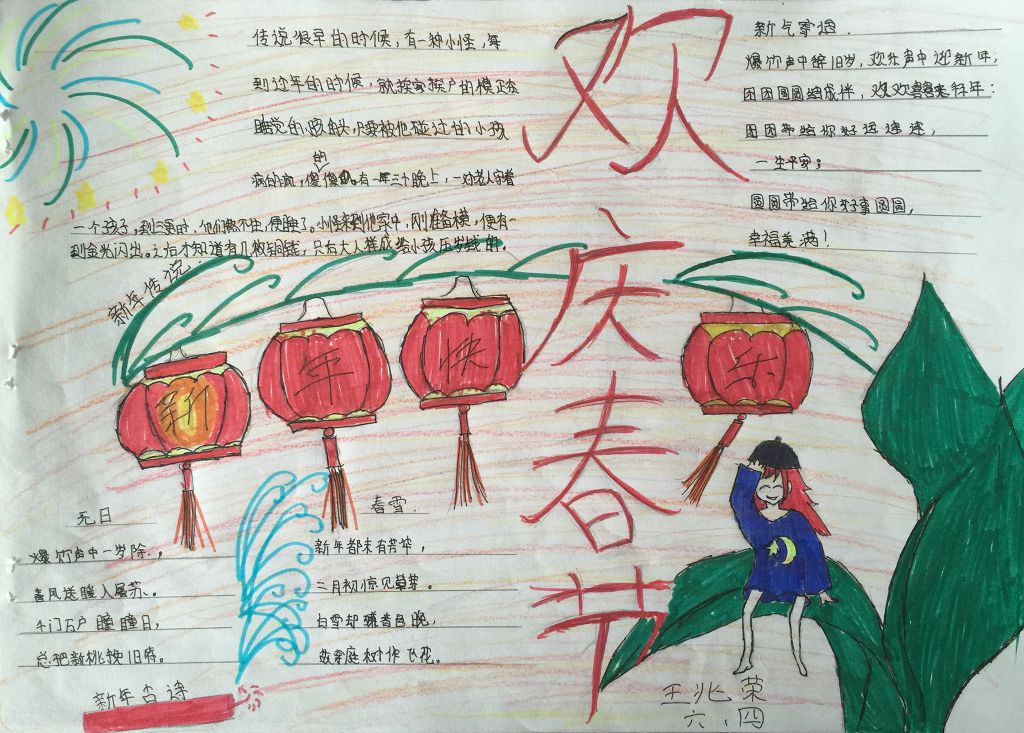 传说很早的时候，有一种小怪，每
到过年的时候，就挨家挨户的摸正在
睡觉的孩的头，只要被他碰过的小孩
疯的疯，傻的傻的。有一年三十晚上，一对老人守着
一个孩子，到三更时，他们熬不住，便睡了。小怪来到他家中，刚准备摸，便有一
到金光闪出。之后才知道有几枚铜钱，只右大人送给小孩压岁钱
新年传说：
欢庆春节
新气象谣
爆竹声中辞旧岁，欢乐声中迎新年，
团团圆圆结成伴，欢欢喜喜来拜年：
团团带给你好运连连，
一生平安；
圆圆带给你好事圆圆，
幸福美满！
新年快乐
元日
爆竹声中一岁除，
春风送暖入屠苏、。
千门万户瞳瞳日，
总把新桃换旧符。
春雪
新年都未有芳华，
二月初惊见草芽。
白雪却嫌春色晚，
故穿庭树作飞花。
新年古诗
王兆荣
六、四